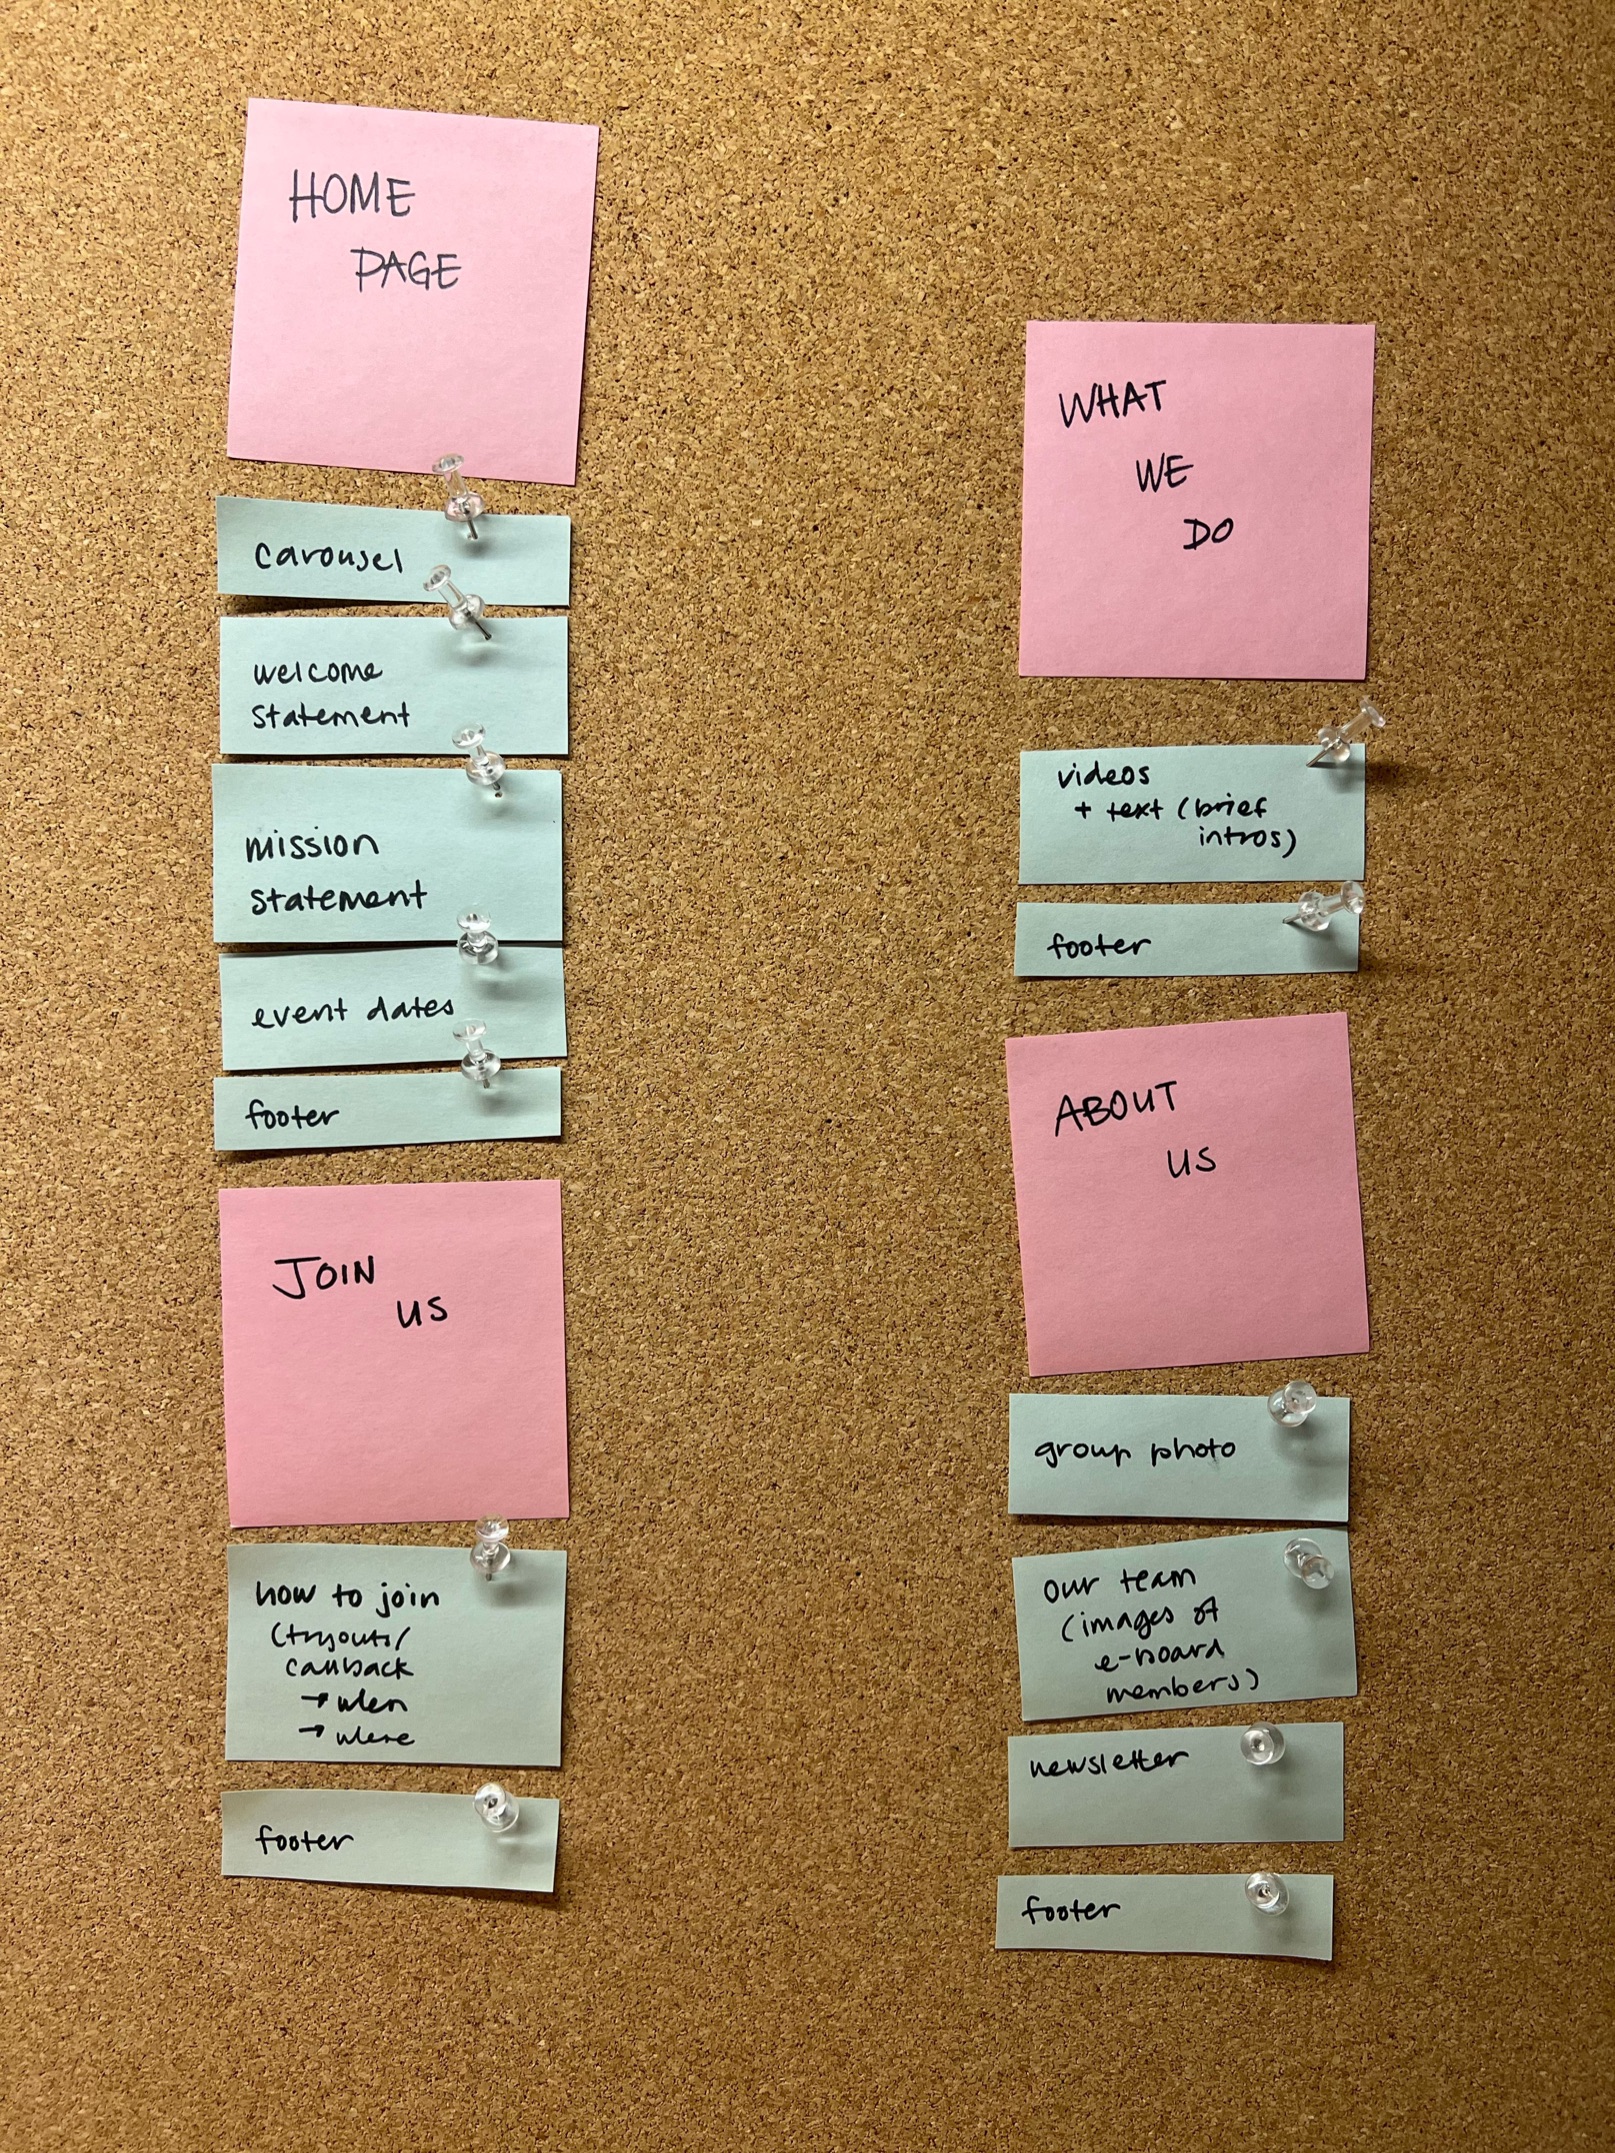 HOME
PAGE
carousel
welcome
statement
mission
statement
event dates
footer
JOIN
US
how to join
(tryouts/
callback
→ when
→ where
footer
WHAT
WE
DO
videos
+ text (brief
intros)
footer
ABOUT
US
group photo
our team
(images of
e-board
members)
newsletter
footer